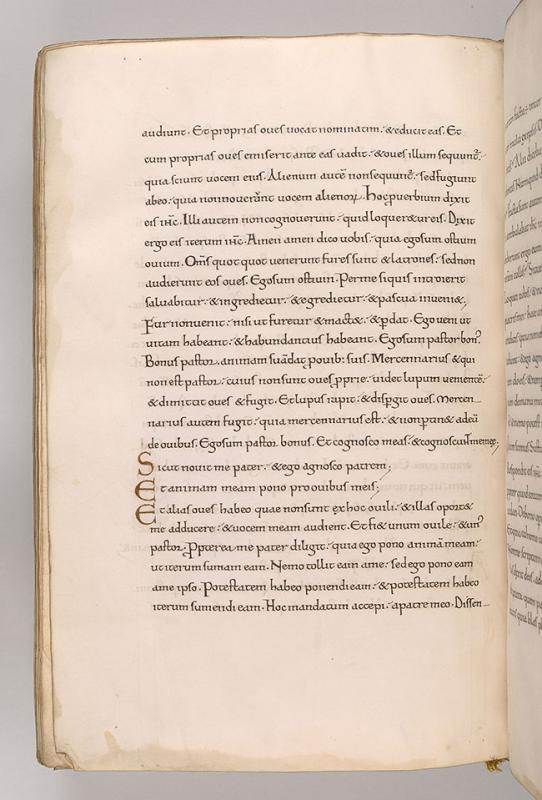 audiunt. Et proprias oues uocat nominatim. & educit eas. Et
cum proprias oues emiserit ante eas uadit. & oues illum sequunt̃.
quia sciunt uocem eius. Alienum autẽ non sequunt̃. sed fugiunt
abeo. quia non nouerant uocem alienoꝝ. Hoc ꝓuerbium dixit
eis ihc̄. Illi autem non cognouerunt. quid loquer&ur eis. Dixit
ergo eis iterum ihc̄. Amen amen dico uobis. quia ego sum ostium
ouium. Om̄s quot quot uenerunt fures sunt & latrones. sed non
audierunt eos oues. Ego sum ostium. Per me si quis introierit
saluabitur. & ingredietur. & egredietur. & pascua inueni&;
Fur non uenit. nisi ut furetur & mact&. & ꝑdat. Ego ueni ut
uitam habeant. & habundantius habeant. Ego sum pastor bon᾽.
Bonus pastor. animam suā dat ꝓ ouib: suis. Mercennarius & qui
non est pastor. cuius non sunt oues ꝓprie. uidet lupum uenientẽ.
& dimittit oues & fugit. Et lupus rapit. & disꝑgit oues. Mercen-
narius autem fugit. quia mercennarius est. & non ꝑtin& ad eū
de ouibus. Ego sum pastor bonus. Et cognosco meas. & cognoscunt me meę;
Sicut nouit me pater. & ego agnosco patrem;
Et animam meam pono pro ouibus meis;
Et alias oues habeo quae non sunt ex hoc ouili. & illas oport&
me adducere. & uocem meam audient. Et fi& unum ouile. & un᾽
pastor. Ꝓpterea me pater diligit. quia ego pono animā meam.
ut iterum sumam eam. Nemo tollit eam a me. sed ego pono eam
a me ipso. Potestatem habeo ponendi eam. & potestatem habeo
iterum sumendi eam. Hoc mandatum accepi. a patre meo. Dissen-